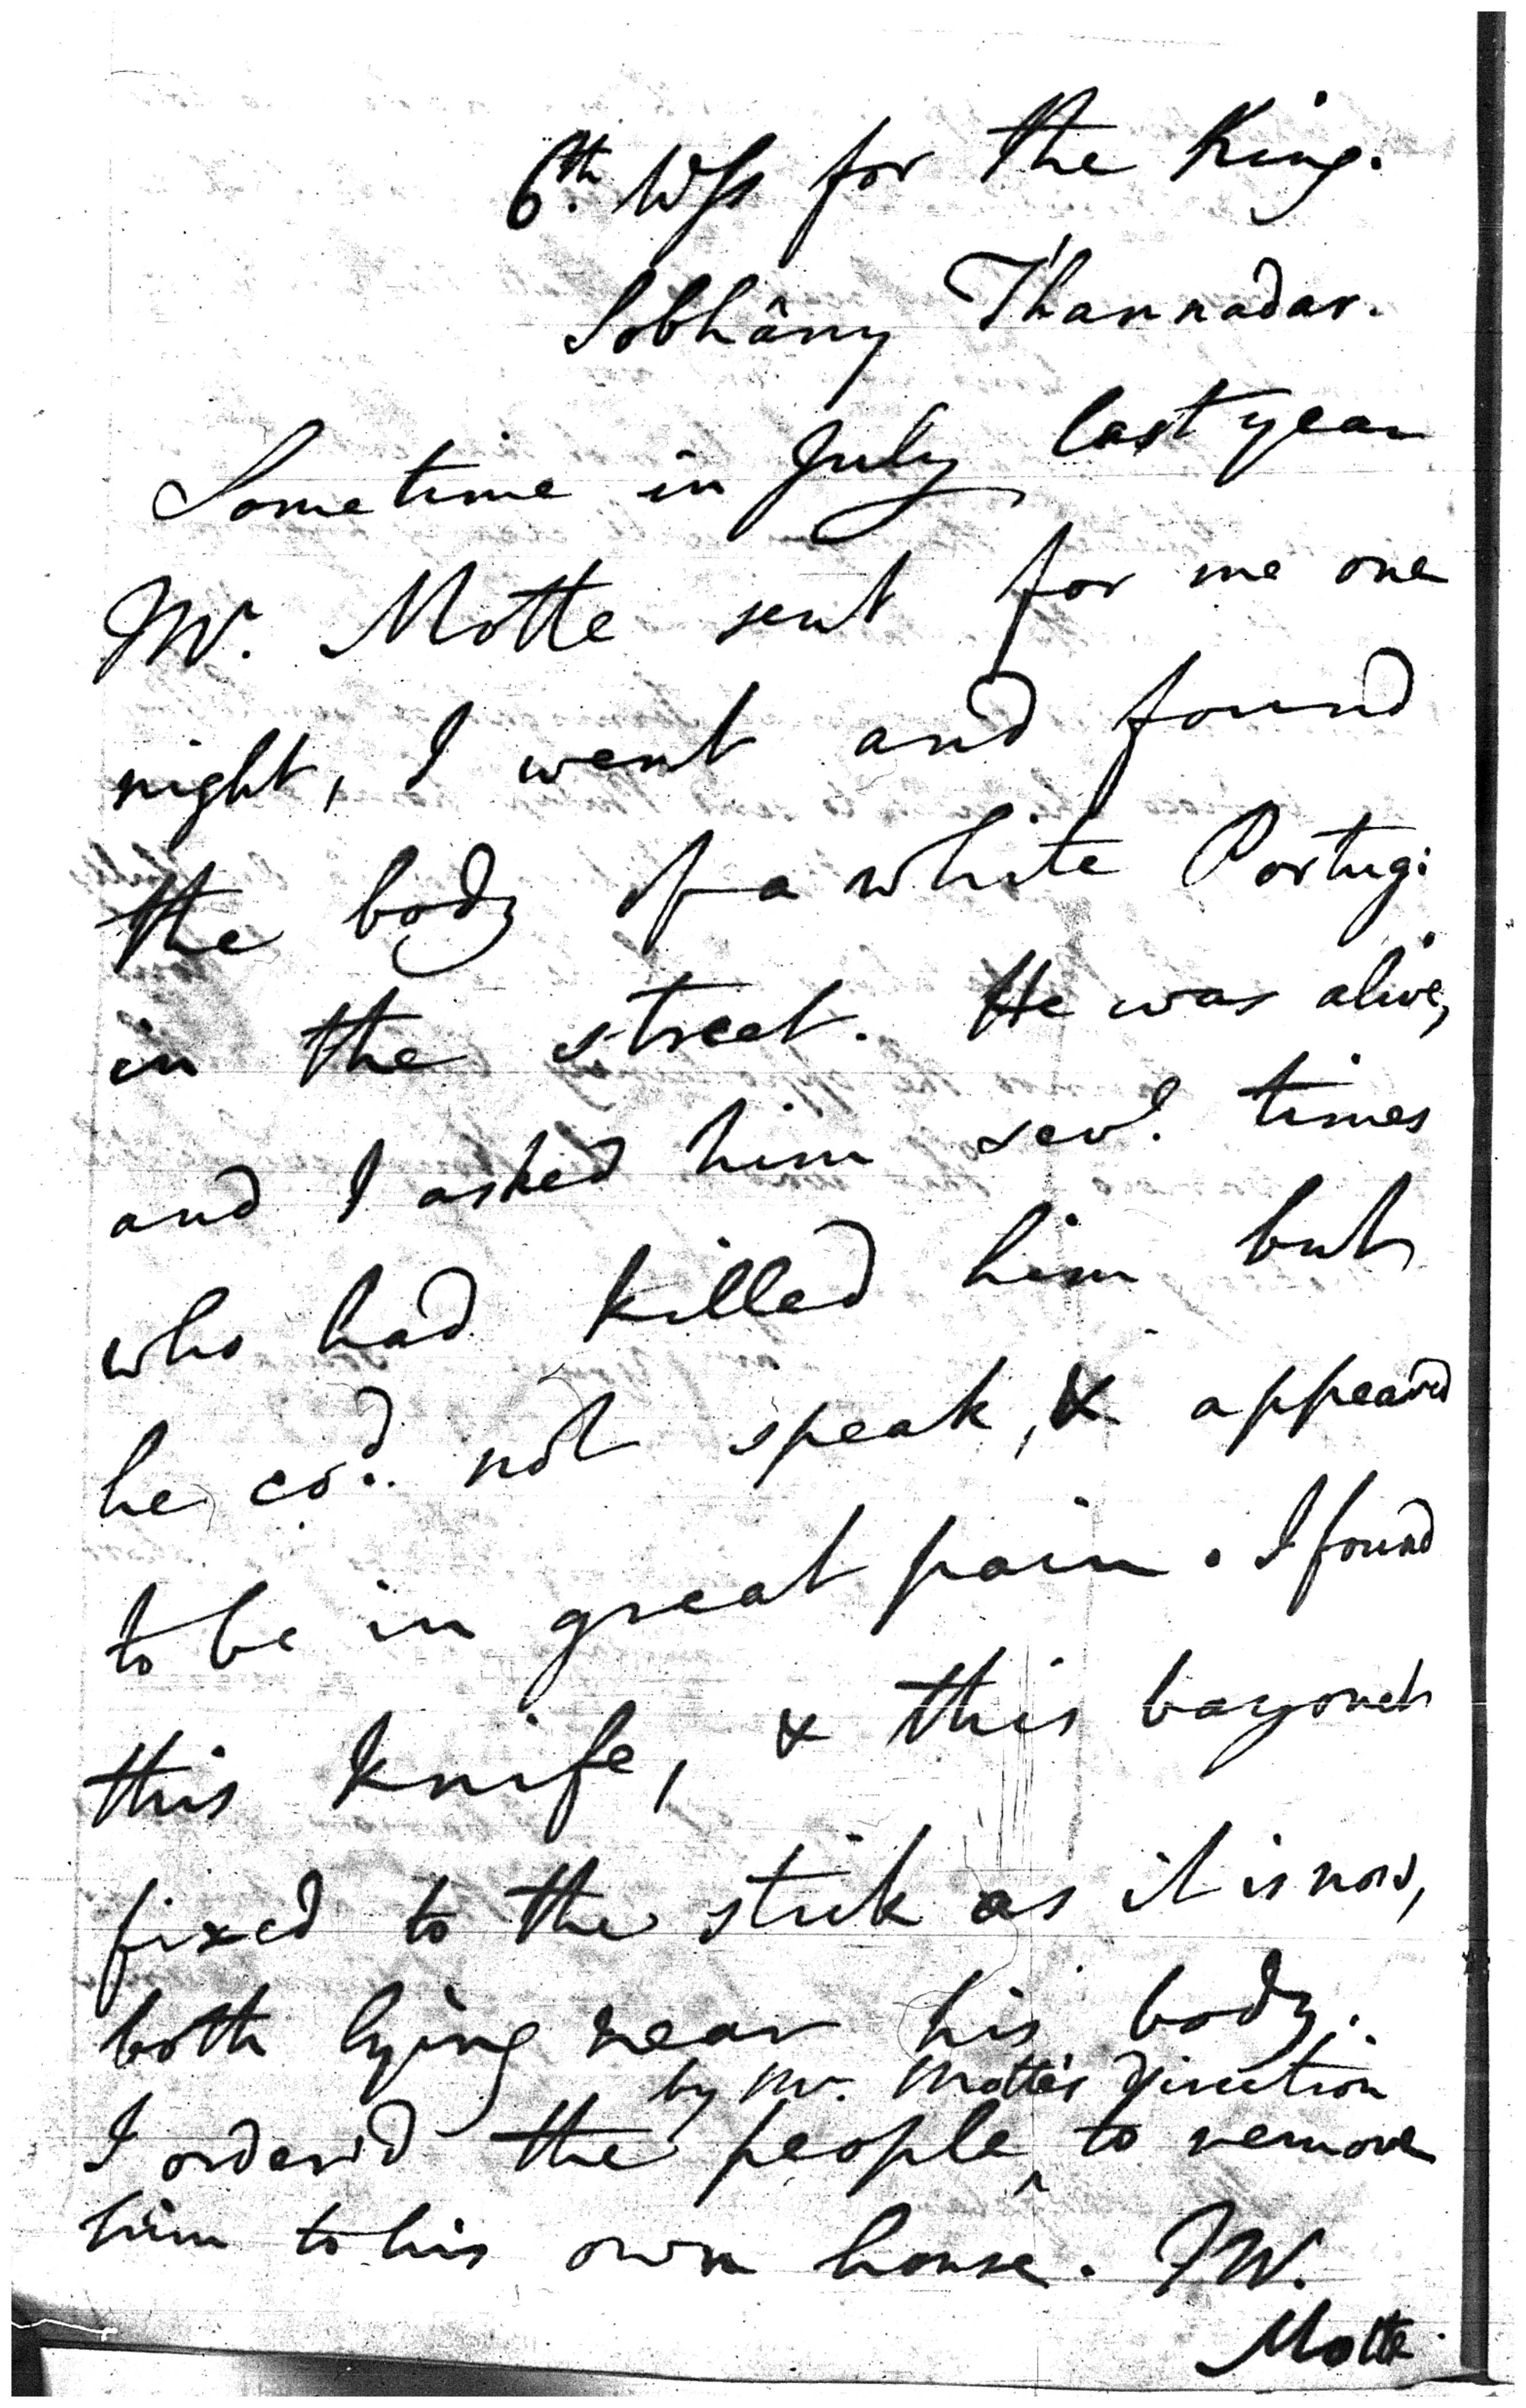 6th. Wss for the King.
Sobhâny Thannadar.
Sometime in July last year
Mr. Motte sent for me one
night, I went and found
the body of a white Portug:
in the street. He was alive,
and I asked him sevl. times
who had killed him but
he cod. not speak, & appeared
to be in great pain. I found
this knife, & this bayonet
fixed to the stick as it is now,
both lying near his body.
by Mr. Motte's direction
I order'd the people ^ to remove
him to his own house. Mr.
Motte